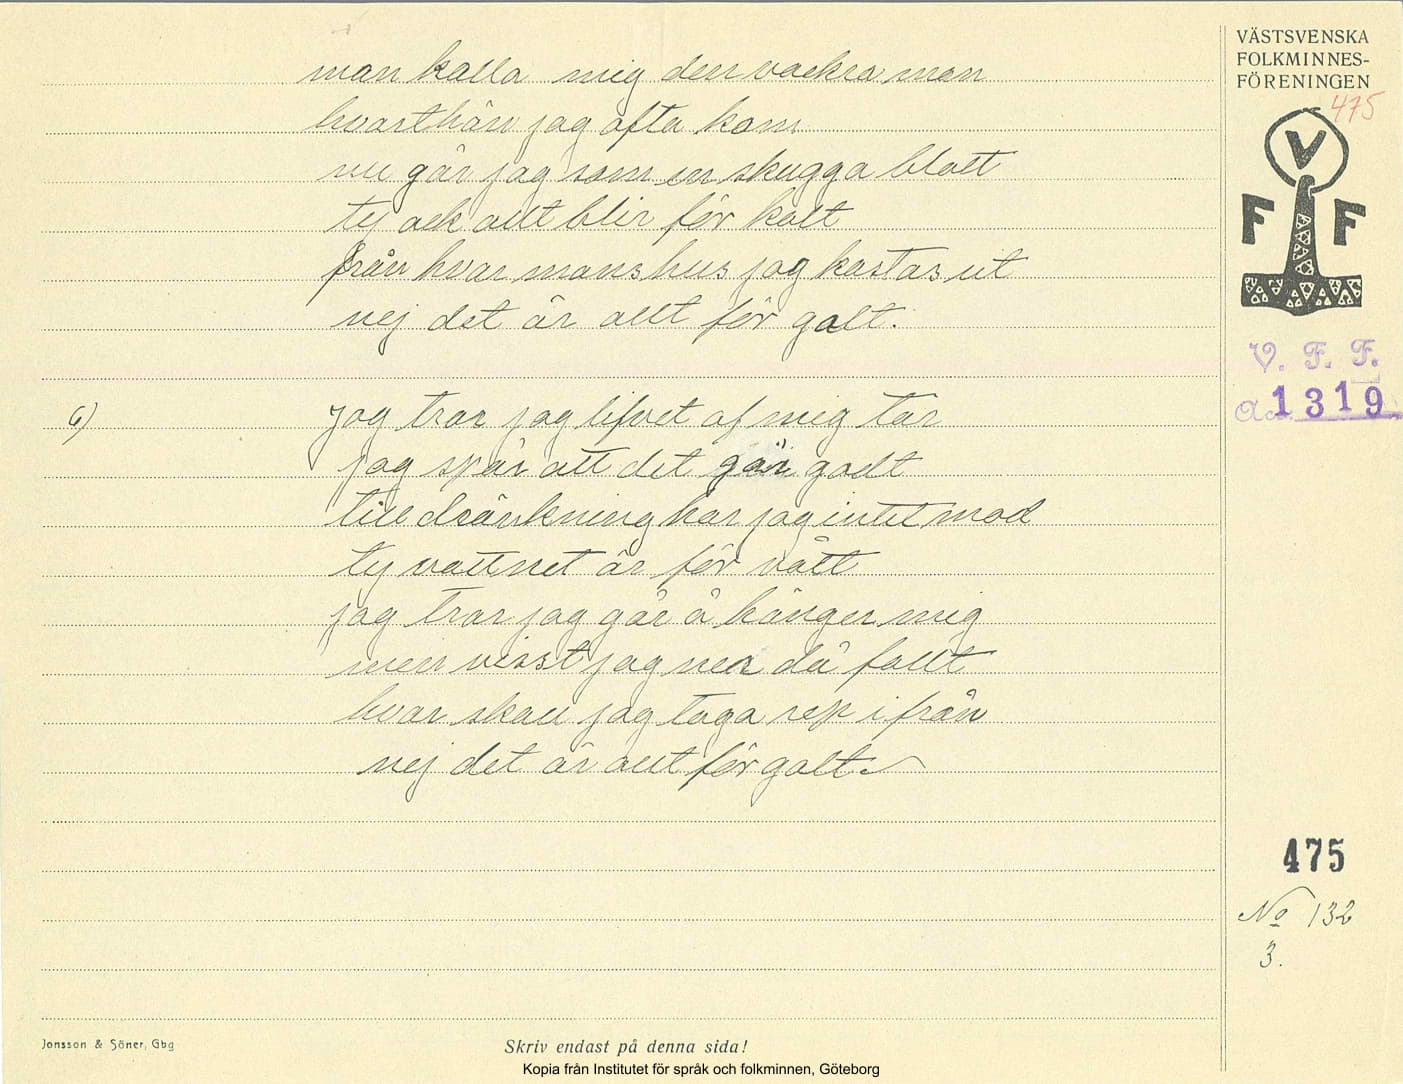 VÄSTSVENSKA
FOLKMINNES-
FÖRENINGEN
475
V
F F
V. F. F.
Ac. 1319
man kalla mig den vackra man
hvarthän jag ofta kom
nu går jag som en skugga blott
ty ack allt blir för kalt
från hvar mans hus jag kastas ut
nej det är allt för galt.
6) jag tror jag lifvet af mig tar
jag spår att det går godt
till dränkning har jag intet mod
ty vattnet är för vått
jag tror jag går å hänger mig
men visst jag ner då fallt
hvar skall jag taga rep ifrån
nej det är allt för galt.
475
No 132
3.
Jonsson & Söner, Gbg
Skriv endast på denna sida!
Kopia från Institutet för språk och folkminnen, Göteborg